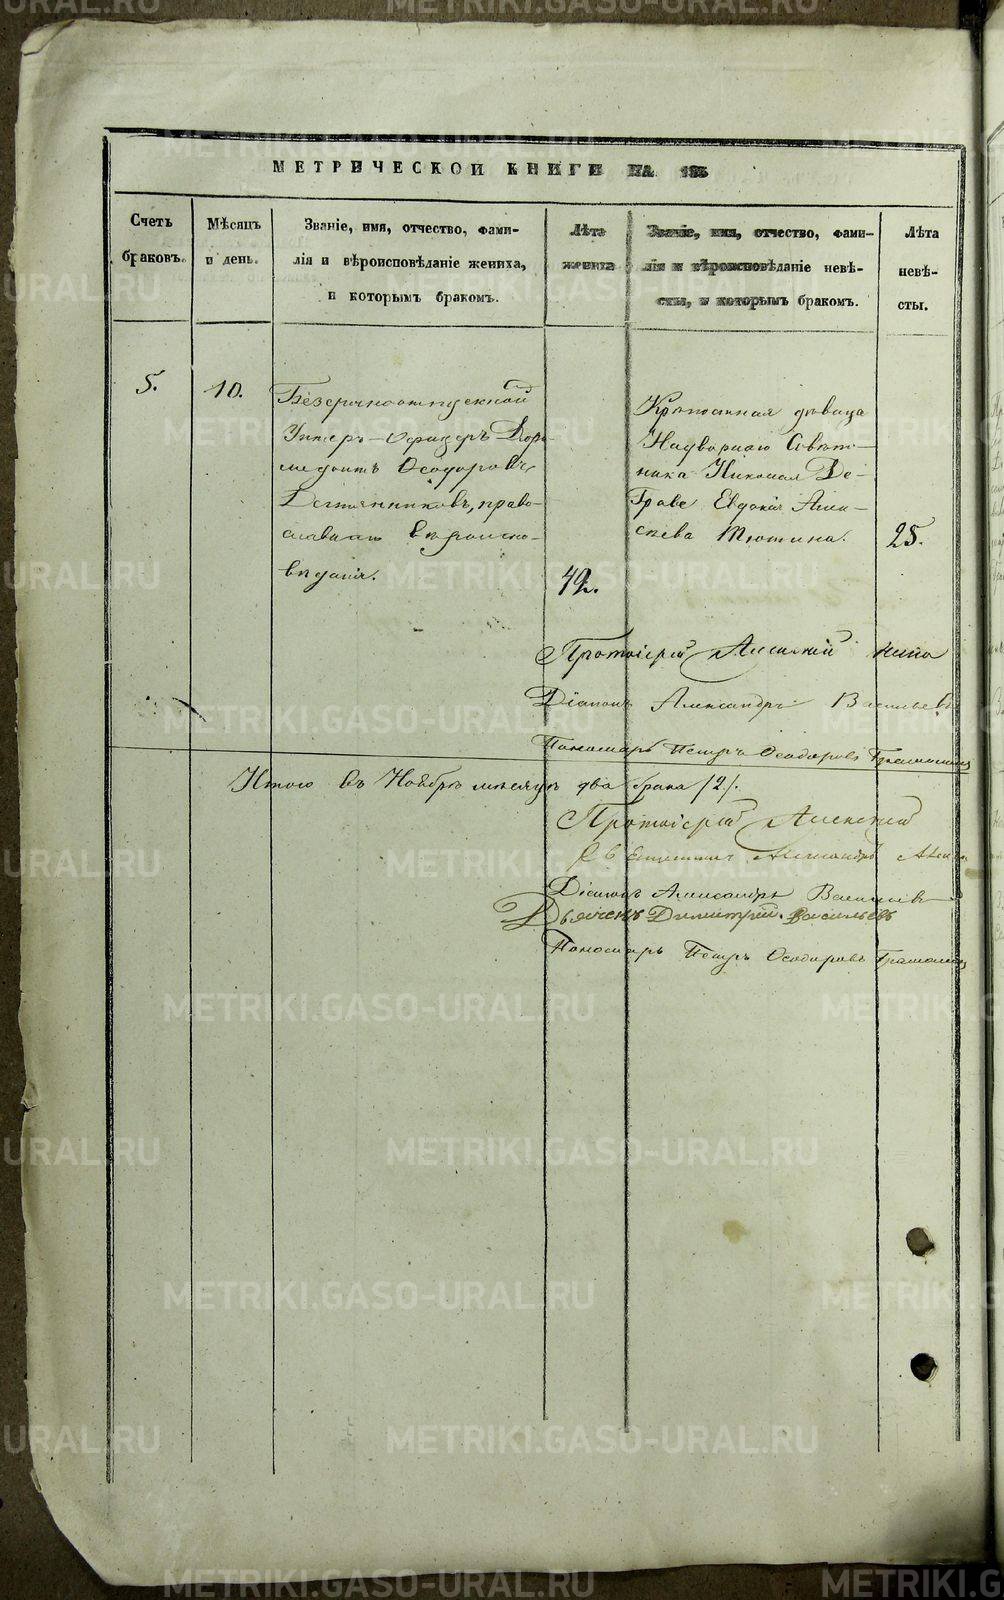 МЕТРИЧЕСКОЙ КНИГИ НА 185
Счетъ браковъ.
Мѣсяцъ и день.
Званіе, имя, отчество, фами-
лія и вѣроисповѣданіе жениха,
и которымъ бракомъ.
Лѣта жениха
Званіе, имя, отчество, фами-
лія и вѣроисповѣданіе невѣ-
сты, и которымъ бракомъ.
Лѣта невѣ-
сты.
5.
10.
Безсрочноотпускной
Унтеръ-Офицеръ Дор-
медонтъ Ѳеодоровъ
православнаго вѣроиспо-
вѣданія.
49.
Крѣпостная дѣвица
Надворнаго Совѣт-
ника Николая Де-
Граве Евдокія Алек-
сѣева Тютина.
25.
Протоіерей Алексій
Діаконъ Александръ Васильевъ
Пономарь Петръ Ѳеодоровъ
Итого въ Ноябрѣ мѣсяцѣ два брака /2/.
Протоіерей Алексій
Священникъ Александръ
Діаконъ Александръ Васильевъ
Дьячекъ Димитрій Васильевъ
Пономарь Петръ Ѳеодоровъ
METRIKI.GASO-URAL.RU